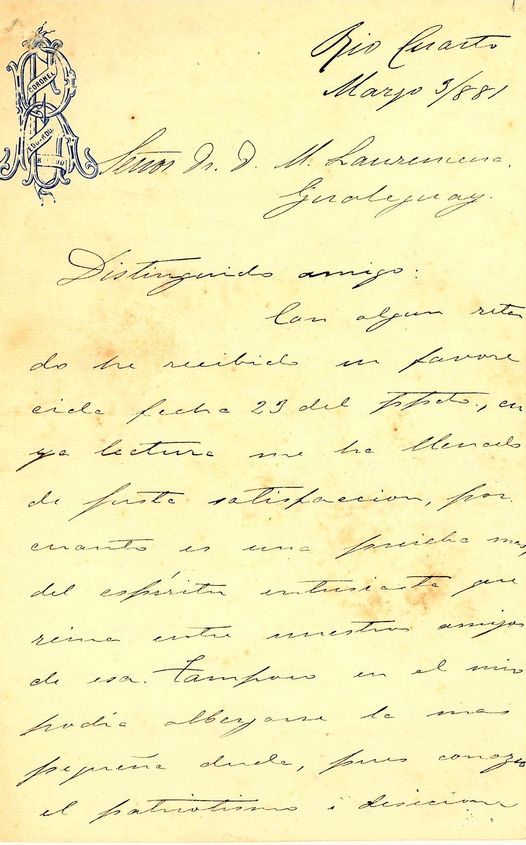 CORONEL
EDUARDO
Rio Cuarto
Marzo 3/881
Señor Dr. D. M. Laurencena
Gualeguay.
Distinguido amigo:
Con algun retar
do he recibido su favore
cida fecha 23 del ppdo, cu
ya lectura me ha llenado
de justa satisfaccion, por
cuanto es una prueba mas,
del espíritu entusiasta que
reina entre nuestros amigos
de esa. Tampoco en el mio
podia albergarse la mas
pequeña duda, pues conozco
el patriotismo i desicion